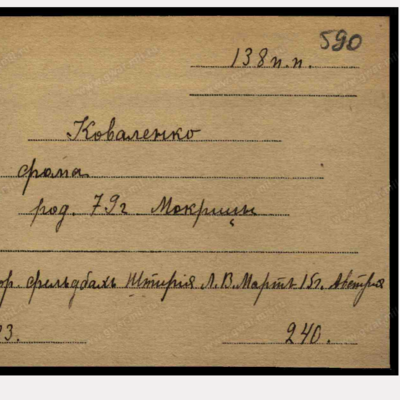 590
138 п.п.
Коваленко
фома
род. 79г Мокрицы
ор. фельдбахъ Штирія Л.В. Мартъ 15г. Австрія
3. 240.